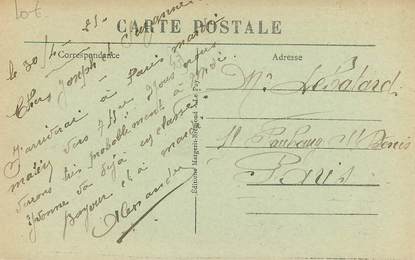 Lot
CARTE POSTALE
Correspondance
Adresse
le 30/ 25
Chers Joseph et Suzanne
J'arriverai à Paris mardi
matin vers 7
verrons très probablement à midi
Yvonne va déjà en classe
Bonjour et à mardi
Alexandre
Mr Lebatard
Faubourg St Denis
Paris